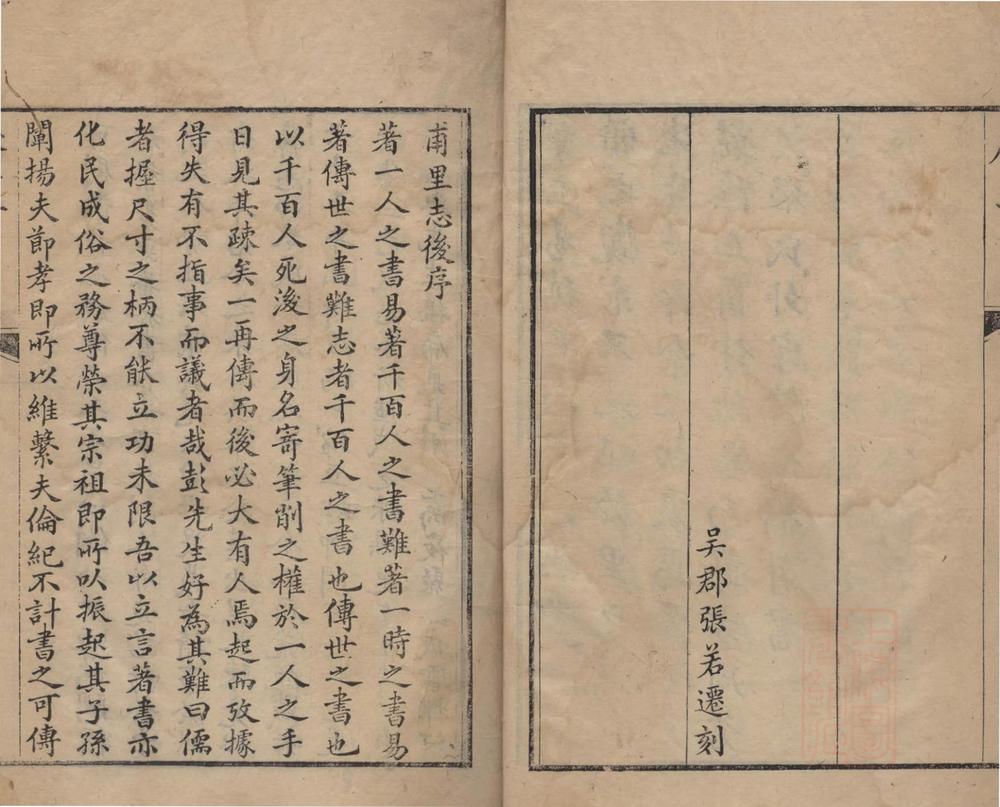 吴郡張若遷刻
甫里志後序
著一人之書易著千百人之書難著一時之書易
著傳世之書難志者千百人之書也傳世之書也
以千百人死後之身名寄筆削之權於一人之手
日見其疎矣一再傳而後必大有人焉起而攷據
得失有不指事而議者哉彭先生好為其難曰儒
者握尺寸之柄不能立功未限吾以立言著書亦
化民成俗之務尊榮其宗祖即所以振起其子孫
闡揚夫節孝即所以維繫夫倫紀不計書之可傳